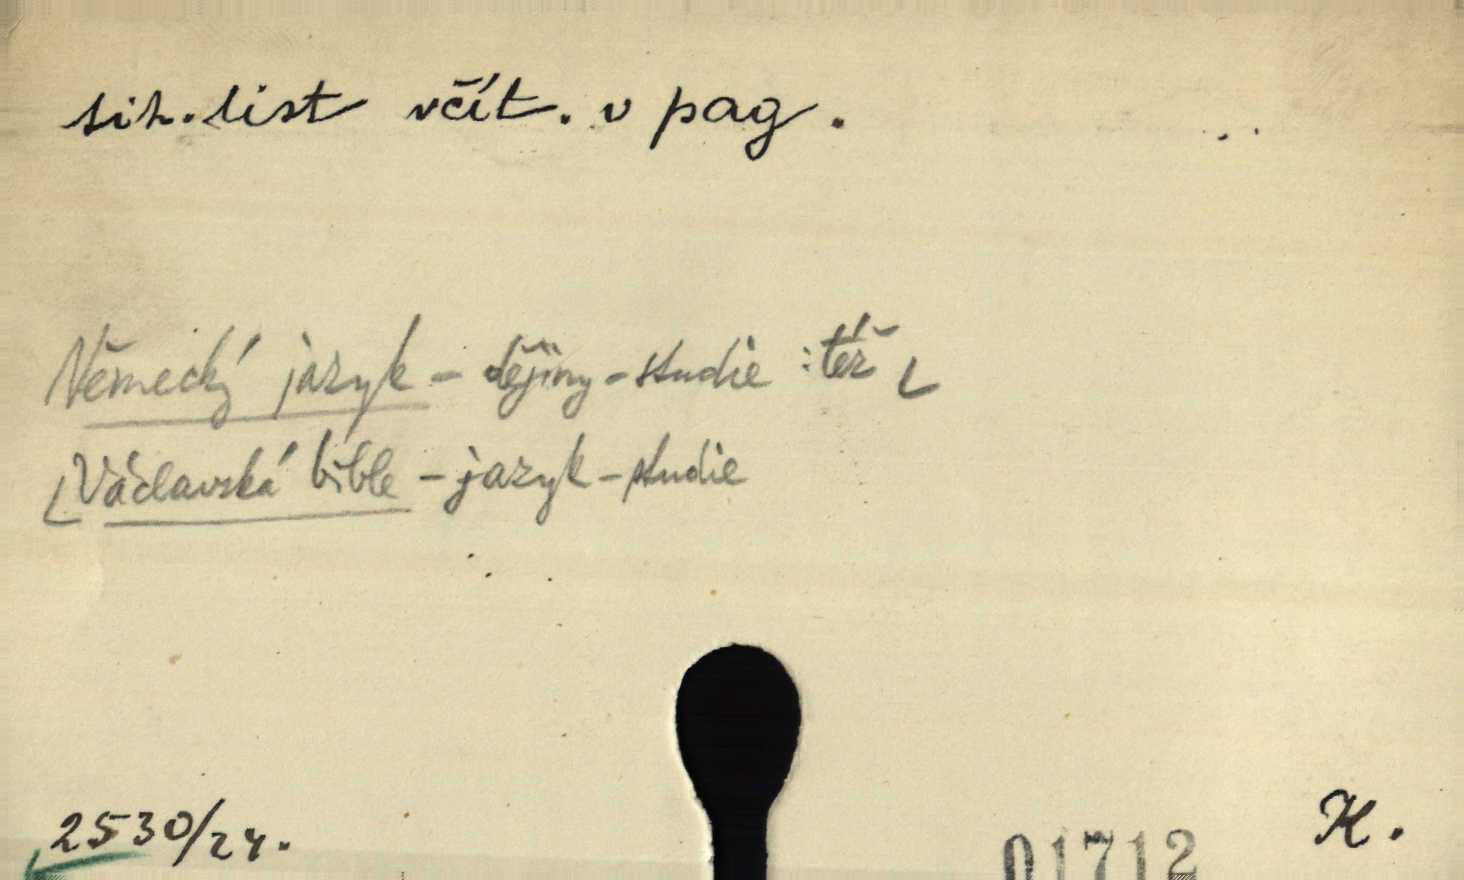 sih. list včít. v pag.
Německý jazyk - dějiny - studie : též L
[Václavská bible - jazyk - studie
2530/24.
01712
H.